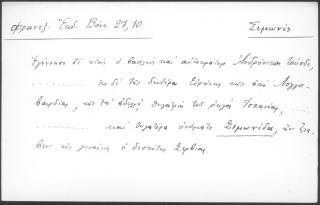 Φραντζ. Ἐκδ. Βόνν. 27,10. Σιμωνίς
Ἐγέννησε δὲ υἱοὺς ὁ βασιλεὺς καὶ αὐτοκράτωρ Ἀνδρόνικος τούσδε,
............ ἐκ δὲ τῆς δευτέρας Εἰρήνης τῆς ἀπὸ Λογγο-
βαρδίας, τῆς τοῦ ἀδελφοῦ θυγατρὸς τοῦ ῥηγὸς Ἱσπανίας,
............ καὶ θυγατέρα ὀνόματι Σιμωνίδα, ἣν ἔλα-
βεν εἰς γυναῖκα ὁ δεσπότης Σερβίας.